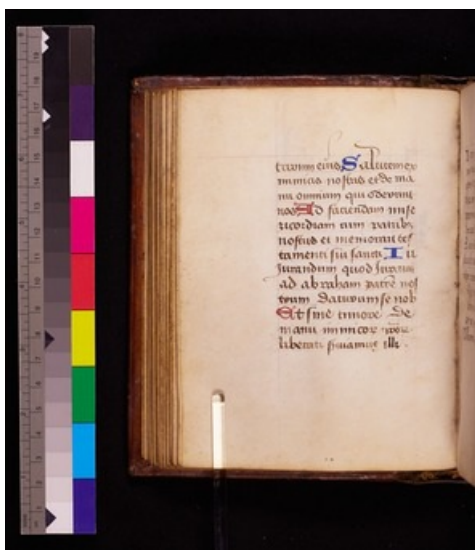 tarum eius Salutem ex
inimicis nostris et de ma
nu omnium qui oderunt
nos Ad faciendam mise
ricordiam cum patrib
nostris et memorari tes
tamenti sui sancti Iu
iurandum quod iuravit
ad abraham patre nos
trum daturum se nob
Et sine timore de
manu inimicor
liberati serviamus illi.